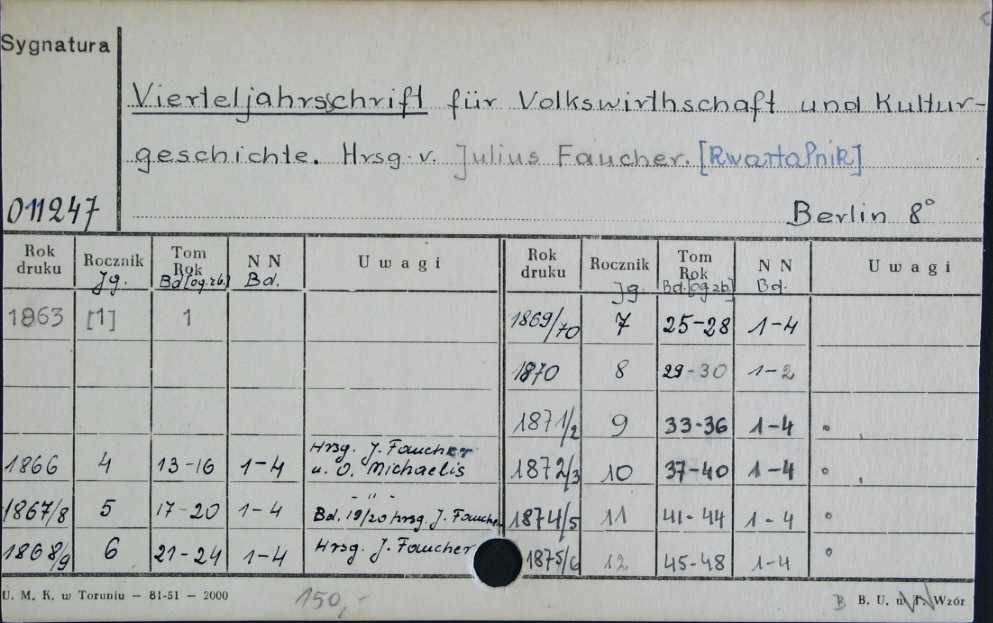 Sygnatura
Vierteljahrsschrift für Volkswirthschaft und Kultur-
geschichte. Hrsg. v. Julius Faucher. [Kwartalnik]
011247 Berlin 8°
Rok druku Rocznik Jg. Tom Rok Bd.[og.zb.] N N Bd. Uwagi Rok druku Rocznik Jg. Tom Rok Bd.[og.zb.] N N Bd. Uwagi
1863 [1] 1 1869/70 7 25-28 1-4
1870 8 29-30 1-2
1871/2 9 33-36 1-4
1866 4 13-16 1-4 Hrsg. J. Faucher u. O. Michaelis 1872/3 10 37-40 1-4
1867/8 5 17-20 1-4 - " - Bd. 19/20 hrsg. J. Faucher 1874/5 11 41-44 1-4
1868/9 6 21-24 1-4 Hrsg. J. Faucher 1875/6 12 45-48 1-4
U. M. K. w Toruniu — 81-51 — 2000 150,- B B. U. w T. Wzór